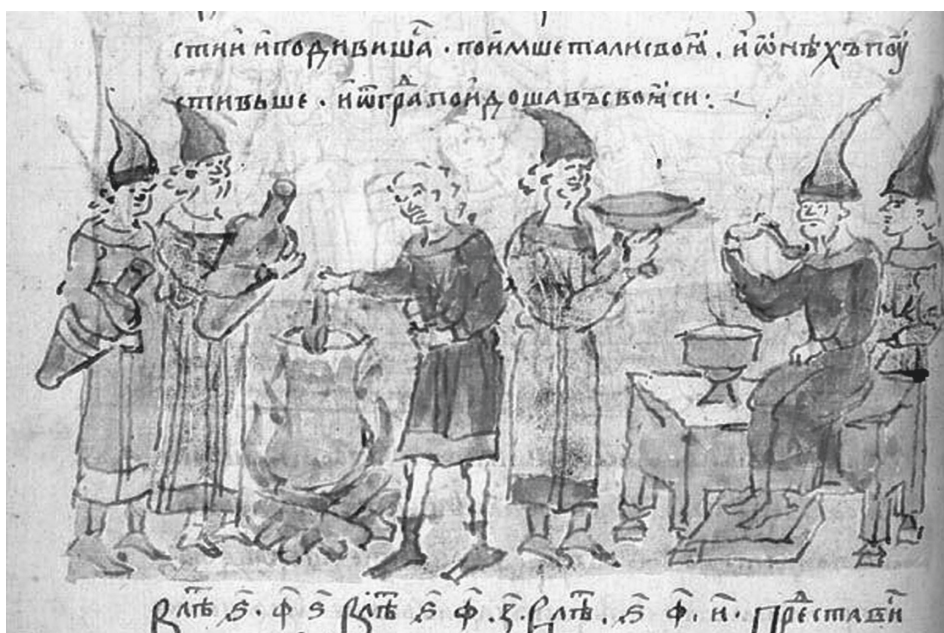 стии и подивишаⷭ · поимше тали своꙗ . и ѡнѣхъ поу
стивьше · и ѿ граⷣ поидоша въ своꙗси :·
В лⷮѣ ѕ҃ · ф҃ ѕ҃ В лⷮѣ ѕ҃ ф҃ · з҃ · В лⷮѣ . ѕ҃ ф҃ · и҃ ·